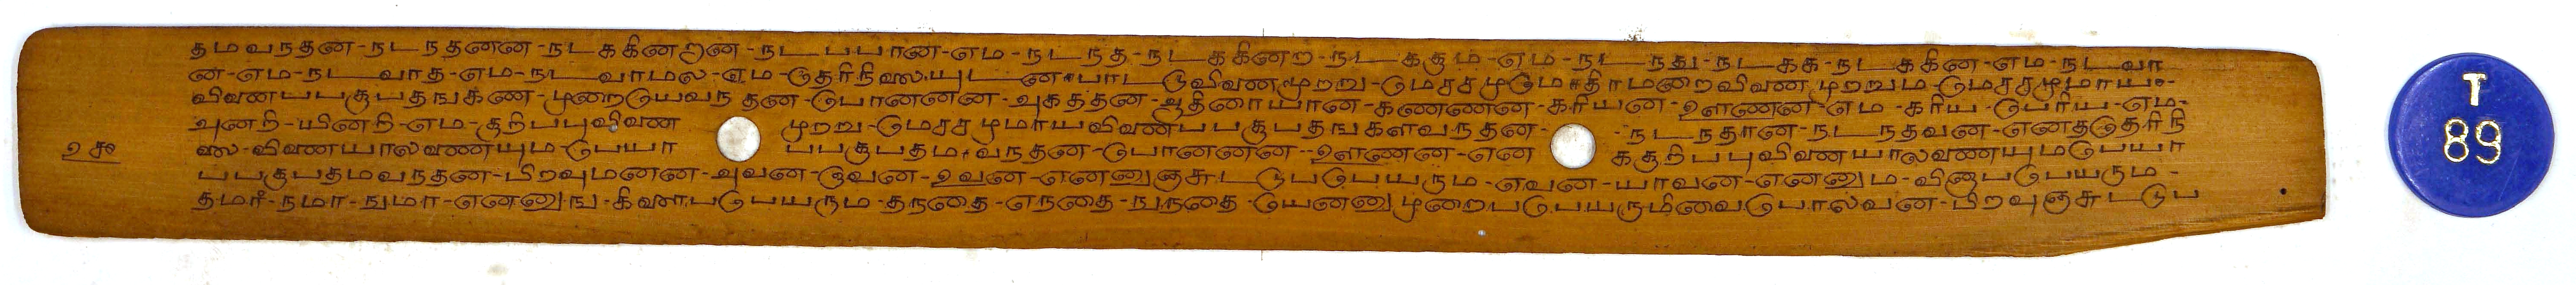 தமவநதன-நடநதனன-நடககினறன-நடபபான-எம-நடநத-நடககினற-நடககும-எம-நடநது-நடகக-நடககின-எம-நடவா
ன-எம-நடவாத-எம-நடவாமல-எம-தெரிநிலையுடன-பாடுவினைமுறறு-மெசசமுமெதிாமறைவினைமுறறும-மெசசமுமாய
வினைபபகுபதஙகள-முறையெவநதன-பொனனன-அகததன-ஆதிரையான-கணணன-கரியன-ஊணன-எம-கரிய-பெரிய-எம-
அனறி-யினறி-எம-குறிபபுவினை முறறு-மெசசமுமாயவினைபபகுபதஙகளவநதன- -நடநதான-நடநதவன-எனததெரிநி
உ௪௰ லை-வினையாலணையும-பெயா பபகுபதம-வநதன-பொனனன--ஊணன-என ககுறிபபுவினையாலணையுமபெயா
பபகுபதமவநதன-பிறவுமனன-அவன-இவன-உவன-எனனுஞசுடடுபபெயரும-எவன-யாவன-எனனும-வினாபபெயரும-
தமா-நமா-நுமா-எனனுங-கிளைபபெயரும-தநதை-எநதை-நுநதை-யெனனுமுறைபபெயருமிவைபோலவன-பிறவுஞசுடடுப
T
89